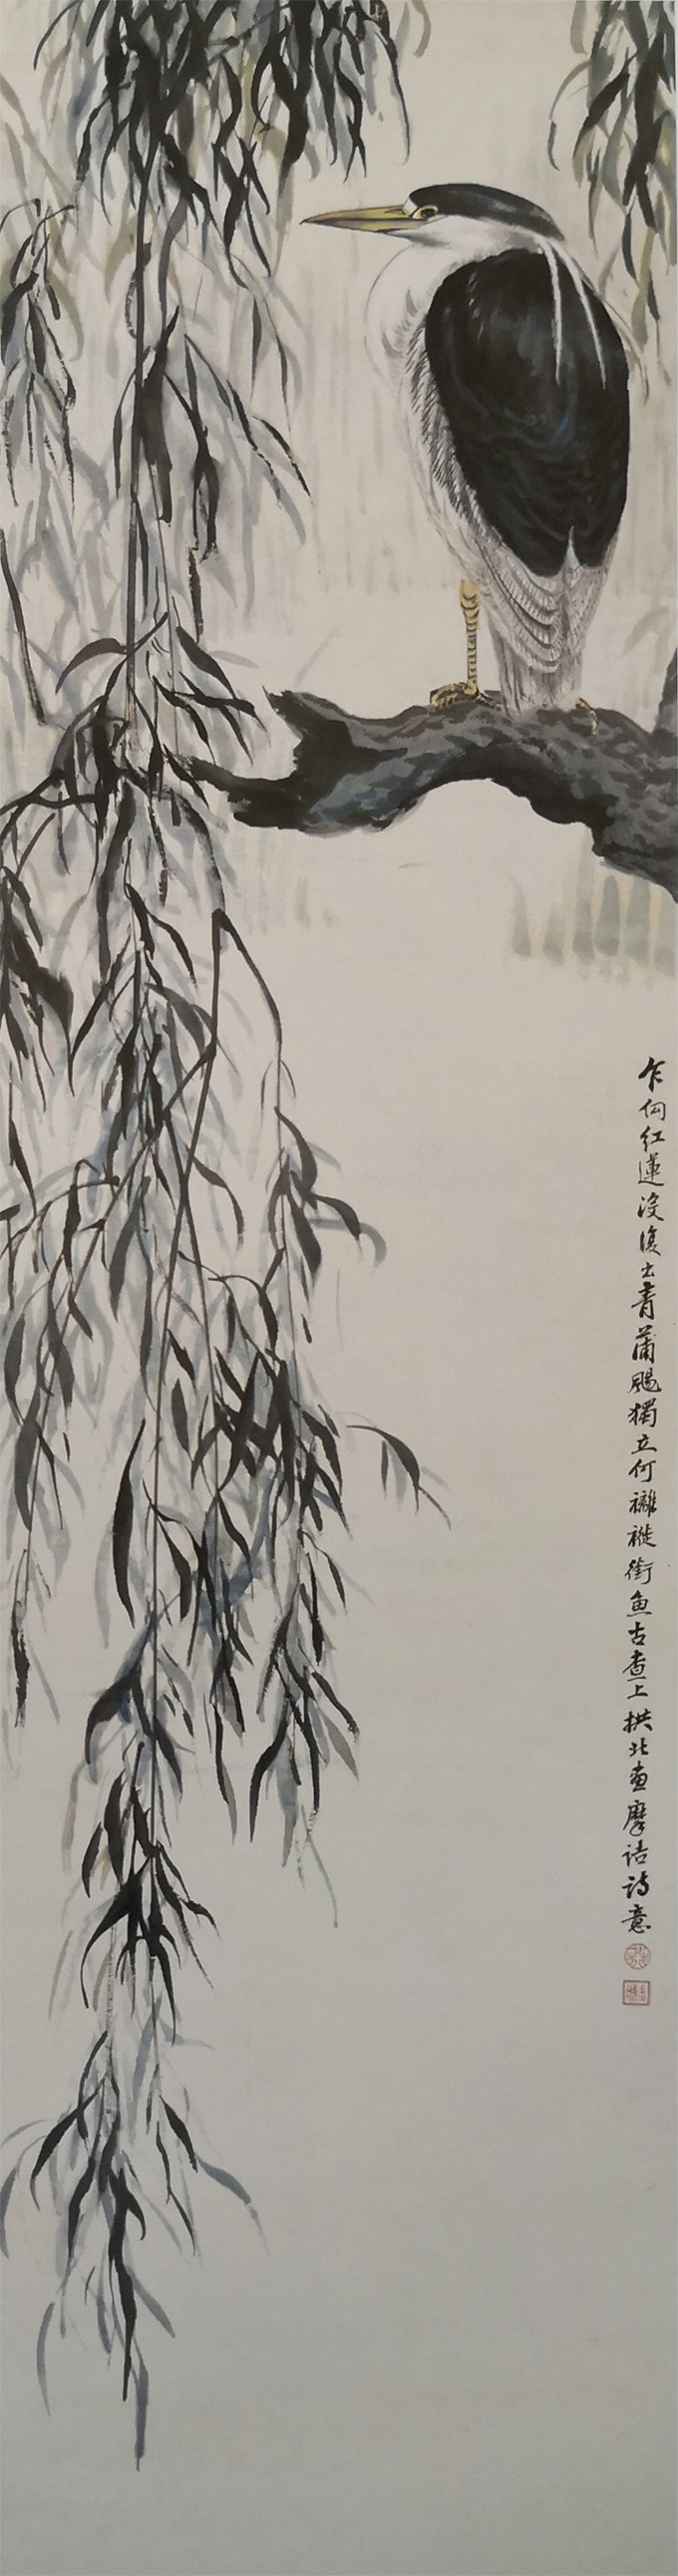 乍向紅蓮没復出青蒲颺獨立何褵褷銜魚古查上拱北畫摩詰詩意